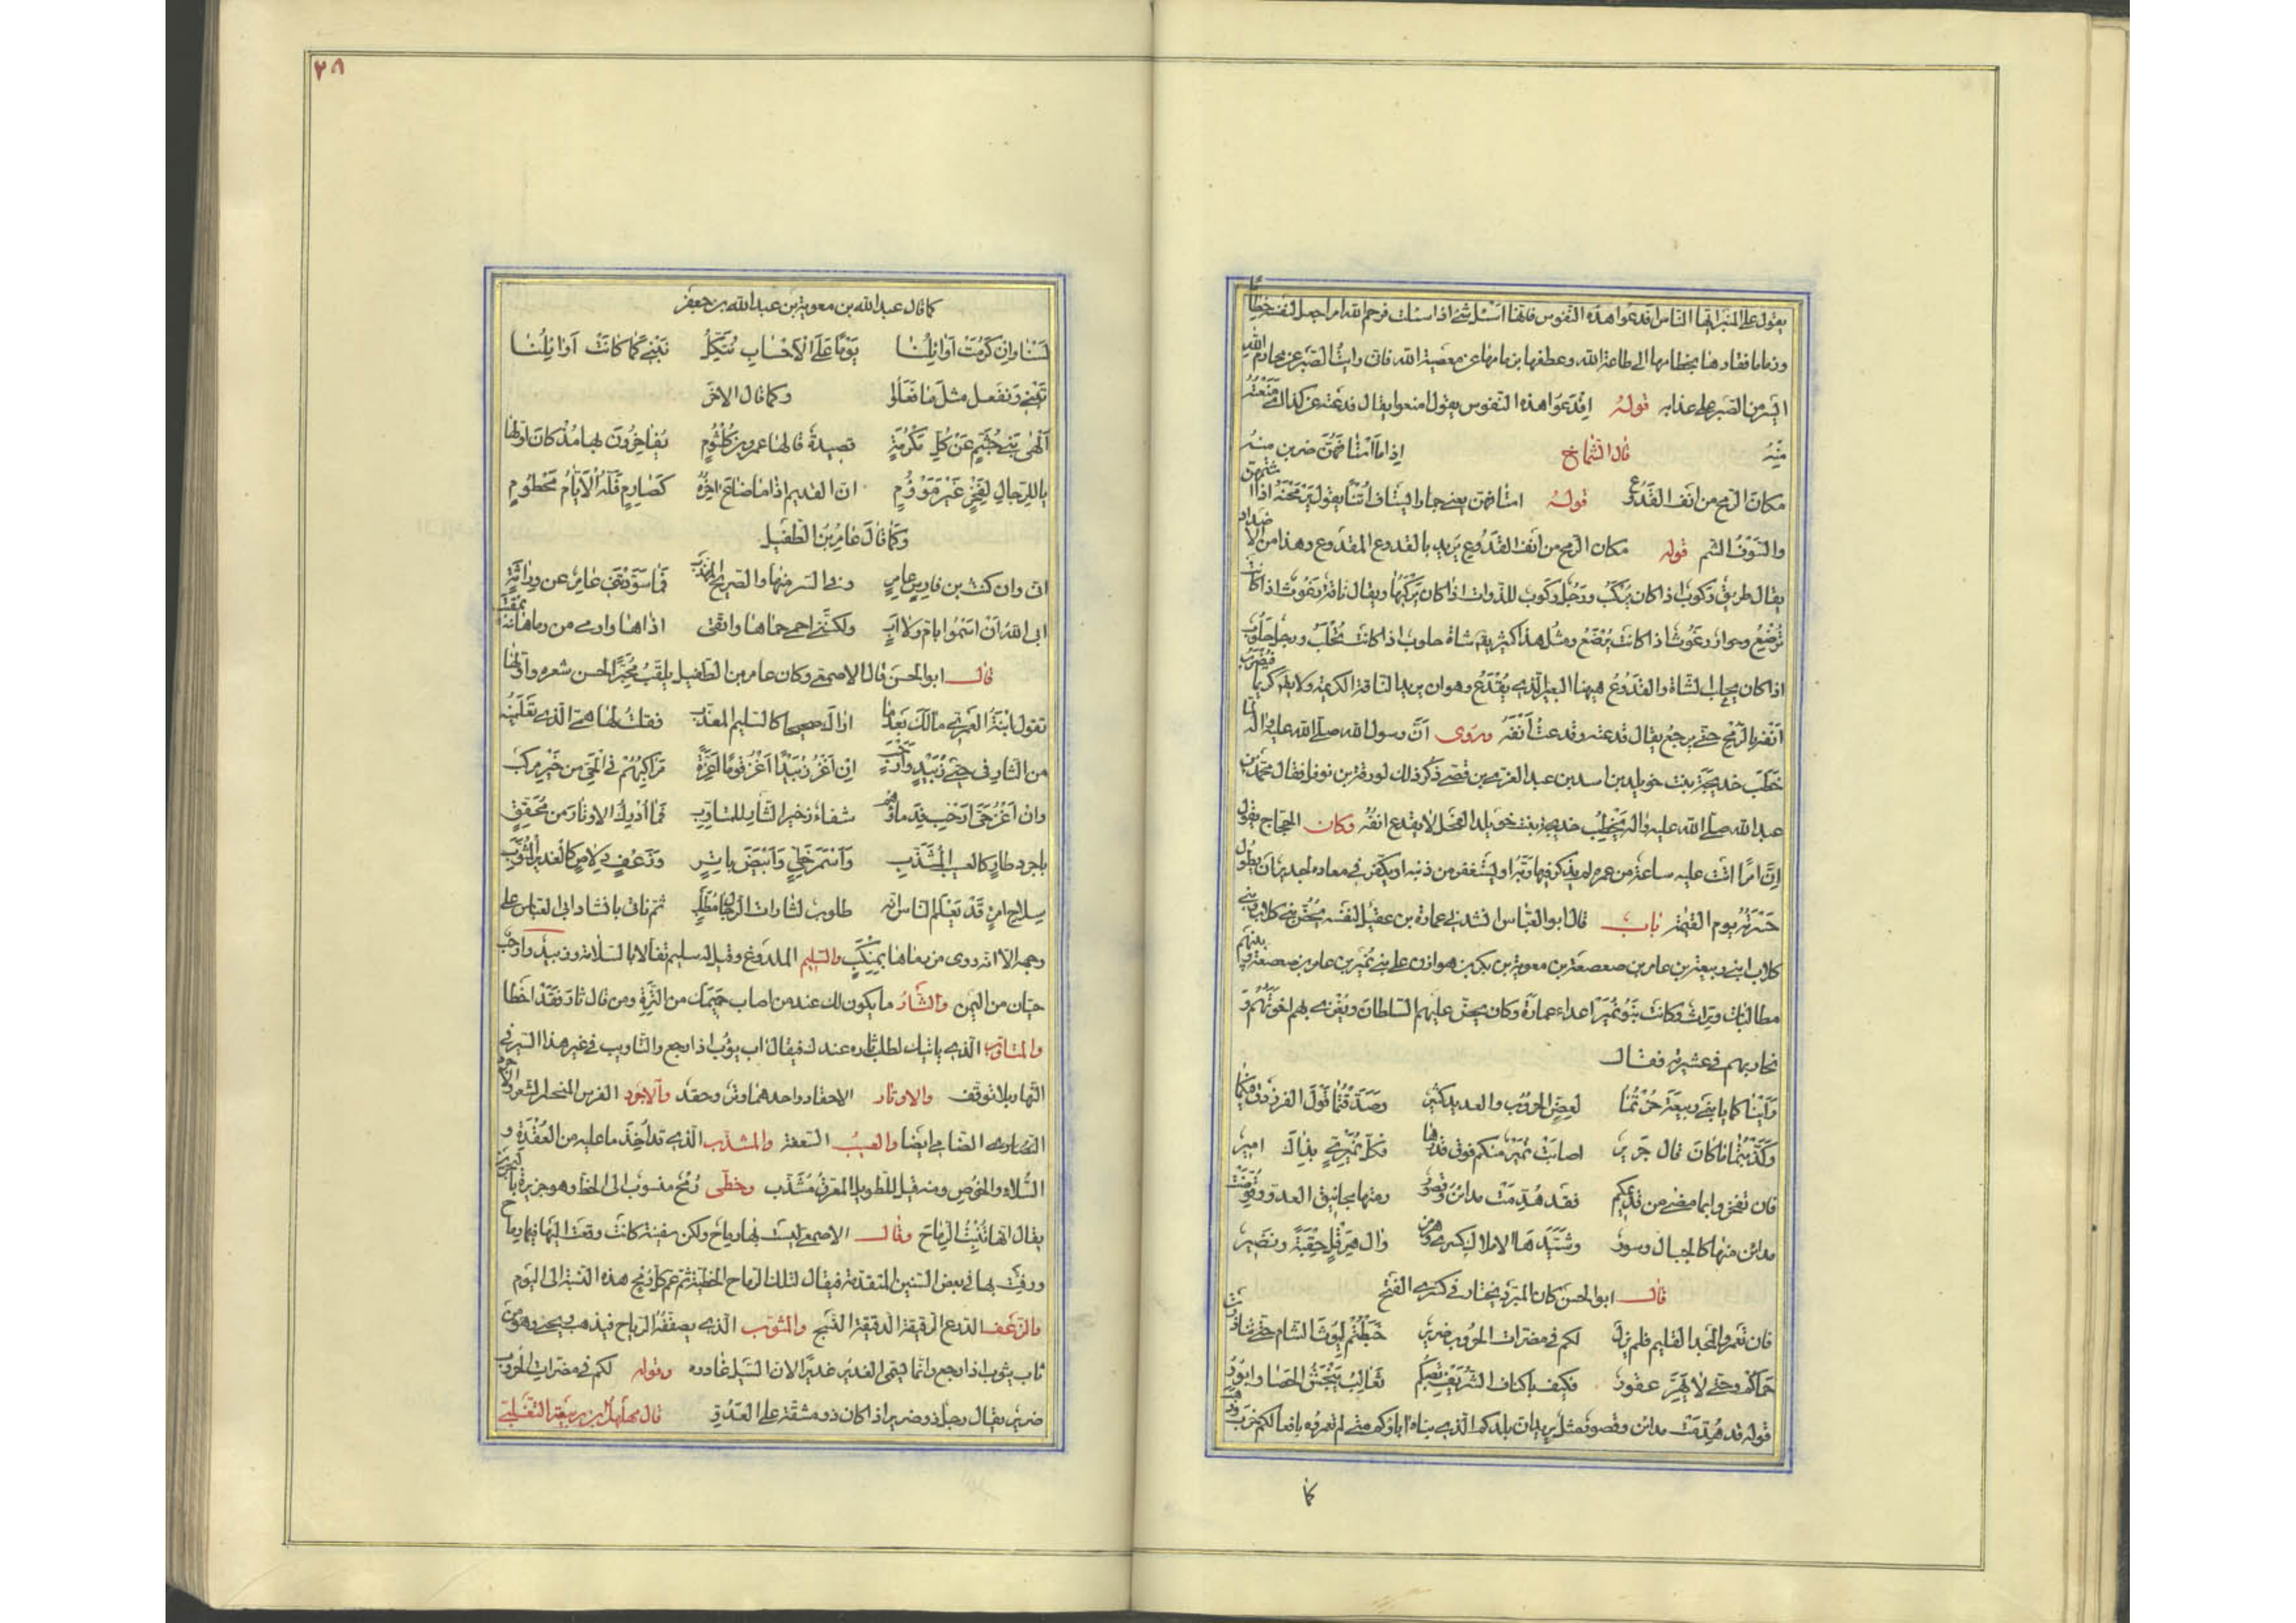 يقول على المنبر ايها الناس اقدعوا هذه النفوس فانها اسئل شئ اذا سئلت فرحم الله امرا جعل لنفسه خطاما
وزماما فقادها بخطامها الى طاعة الله وعطفها بزمامها عن معصية الله فانى رايت الصبر عن محارم الله
ايسر من الصبر على عذابه قوله اقدعوا هذه النفوس يقول امنعوا يقال قدعته عن كذا اى منعته
منه قال الشماخ اذا ما استافهن ضربن منه
مكان الرمح من انف القدوع قوله استافهن يعنى حمارا يستاف اتنا يقول يرمحنه اذا اشتمهن
والسوف الشم قوله مكان الرمح من انف القدوع يريد بالقدوع المقدوع وهذا من الاضداد
يقال طريق ركوب اذا كان يركب ورجل ركوب للدواب اذا كان يركبها ويقال ناقة رغوث اذا كانت
ترضع وحوار رغوث اذا كانت يرضع ومثل هذا كثير يقال شاة حلوب اذا كانت تحلب ورجل حلوب
اذا كان يحلب الشاة والقدوع هيهنا البعير الذى يقدع وهو ان يريد الناقة الكريمة ولا يكون كريما فيضرب
انفه بالرمح حتى يرجع يقال قدعته وقدعت انفه ويروى ان رسول الله صلى الله عليه واله لما
خطب خديجة بنت خويلد بن اسد بن عبد العزى بن قصى ذكر ذلك لورقة بن نوفل فقال محمد بن
عبد الله صلى الله عليه واله يخطب خديجة بنت خويلد الفحل لا يقدع انفه وكان الحجاج يقول
ان امرأ اتت عليه ساعة من عمره لم يذكر فيها ربه او يستغفر من ذنبه او يفكر فى معاده لجدير ان يطول
حسرته يوم القيمة باب قال ابو العباس انشدنى عمارة بن عقيل لنفسه يحض بنى كلاب وبنى
كلاب ابنى ربيعة بن عامر بن صعصعة بن معوية بن بكر بن هوازن على بنى نمير بن عامر بن صعصعة وبينهم
مطالبات وترات وكانت بنو نمير اعداء عمارة وكان يحض عليهم السلطان ويغرى بهم اخوتهم و
يحاربهم فى عشيرته فقال
راينا كما يا بنى ربيعة خرتما لعض الحروب والعديد كثير وصدقتما قول الفرزدق فيكما
وكذبتما ما كان قال جرير اصابت نمير منكم فوق قدرها فكل نميرى بذاك امير
فان تفخروا بما مضى من قديمكم فقد هدمت مدائن وقصور رمتها مجانيق العدو فقوضت
مدائن منها كالجبال وسور وشيدها الاملاك كسرى وهرمز وآل هرقل حقبة ونضير
قال ابو الحسن كان المبرد يختار فى كسرى الفتح
فان تعمروا المجد القديم فلم يزل لكم فى مضرات الحروب ضرير خبطتم ليوث الشام حتى تناذرت
حماكم وحتى لا يهر عقور فكيف باكناف الشريف تصيبكم ثعالب يبحثن الحصا وابور
قوله قد هدمت مدائن وقصور مثل يريد ان بلدكم الذى بناه اباؤكم متى لم تعمروه بافعالكم خرب وذهب
كما
٢٨
كما قال عبد الله بن معوية بن عبد الله بن جعفر
لسنا وان كرمت اوائلنا يوما على الاحساب نتكل نبنى كما كانت اوائلنا
تبنى ونفعل مثل ما فعلوا وكما قال الاخر
الهى بنى جشم عن كل مكرمة قصيدة قالها عمرو بن كلثوم يفاخرون بها مذ كان اولها
يا للرجال لفخر غير مسؤوم ان القديم اذا ما ضاع اخره كصارم فله الايام محطوم
وكما قال عامر بن الطفيل
انى وان كنت بن فارس عامر وفى السر منها والصريح المهذب فما سودتنى عامر عن وراثة
ابى الله ان اسموا بام ولا اب ولكننى احمى حماها واتقى اذاها وارمى من رماها بمقنب
قال ابو الحسن قال الاصمعى وكان عامر بن الطفيل يلقب محبرا لحسن شعره واولها
تقول ابنة العمرى مالك بعد ما اراك صحيحا كالسليم المعذب فقلت لها همى الذى تعلمينه
من الثار فى حيى زبيد وارحب ان اغز زبيدا اغز قوما اعزة مراكبهم فى الحى من خير مركب
وان اغز حيى ارحب فدماؤهم شفاء وخير الثار للمتاوب فما ادرك الاوتار من محقق
باجرد طاو كالعسيب المشذب واسمر خطى وابيض باتر وزغف دلاص كالغدير المثوب
سلاح امرئ قد يعلم الناس انه طلوب لثارات الرجال مطلب
وجهه الا انه روى من رماها بمنكب والسليم الملدوغ وقيل له سليم تفالا بالسلامة وزبيد وارحب
حيان من اليمن والثار ما يكون لك عند من اصاب حميمك من الترة ومن قال ثار فقد اخطا
والمتاوب الذى ياتيك لطلب ثاره عندك فيقال اب يؤب اذا رجع والتاويب فى غير هذا السير فى
النهار بلا توقف والاوتار الاحقاد واحدها وتر وحقد والاجرد الفرس المنجرد الشعر والاجرد
الضامر ايضا والعسيب السعفة والمشذب الذى قد اخذ ما عليه من العقد و
السلاء والخوص ومنه قيل للطويل المعرق مشذب وخطى رمح منسوب الى الخط وهو جزيرة بالبحرين
يقال انها تنبت الرماح وقال الاصمعى ليست بها رماح ولكن سفينة كانت وقعت اليها فيها رماح
وارفئت بها فى بعض السنين المتقدمة فيقال لتلك الرماح الخطية ثم عم كل رمح هذه النسبة الى اليوم
والزغف الدرع الرقيقة الدقيقة النسج والمثوب الذى يصفقه الرياح فيذهب ويجئ وهو من
ثاب يثوب اذا رجع وانما يسمى الغدير غديرا لان السيل غادره وقوله لكم فى مضرات الحروب
ضرير يقال رجل ذو ضرير اذا كان ذو مشقة على العدو قال مهلهل بن ربيعة التغلبى